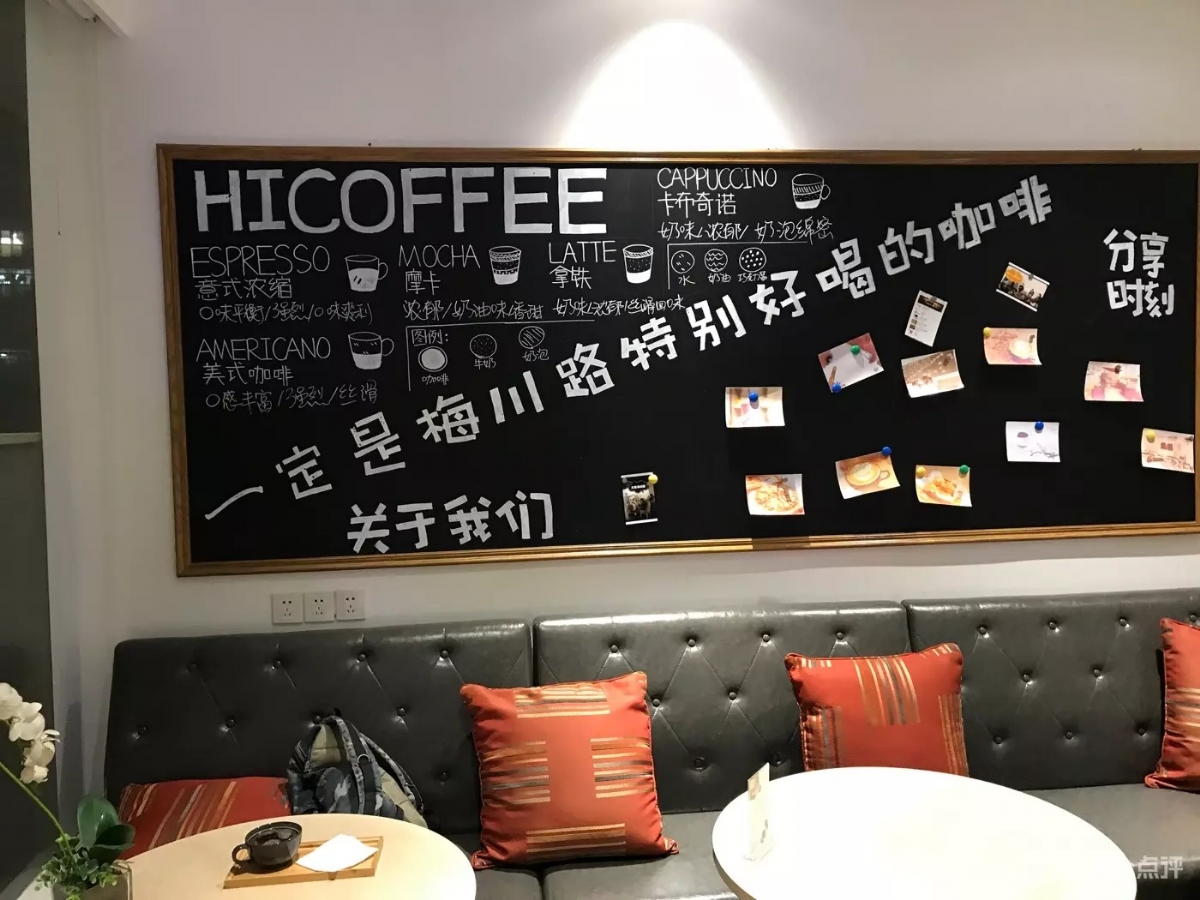 HICOFFEE
CAPPUCCINO
卡布奇诺
奶味/浓郁/奶泡绵密
ESPRESSO
意式浓缩
口味平衡/强烈/口味爽利
MOCHA
摩卡
浓郁/奶油味/香甜
LATTE
拿铁
奶味/浓郁/丝滑回味
水
奶油
巧克力酱
AMERICANO
美式咖啡
口感丰富/强烈/丝滑
图例:
咖啡
牛奶
奶泡
一定是梅川路特别好喝的咖啡
分享
时刻
关于我们
点评